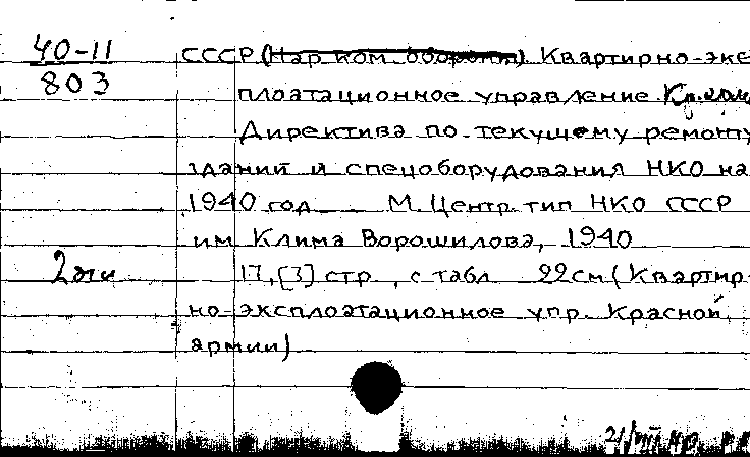 40-11
803
СССР (Нар ком. обороны). Квартирно-экс
плоатационное управление
Директива по текущему ремонту
зданий и спецоборудования НКО на
1940 год М. Центр. тип НКО СССР
им Клима Ворошилова, 1940
2 экз
17, [3] стр., с табл 22см (Квартир-
но-эксплоатационное упр. Красной
армии)